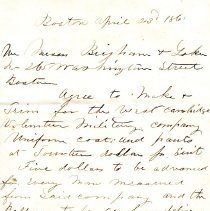 Boston April 23d 186
We Messrs Bigham &
No 26 Washington Street
Boston
Agree to Make &
Trim for the West Cambridge
Volunteer Military company
Uniform coat and pants
at Fourteen dollars pr Suit
Five dollars to be advanced
for every man measured
from Said company and the